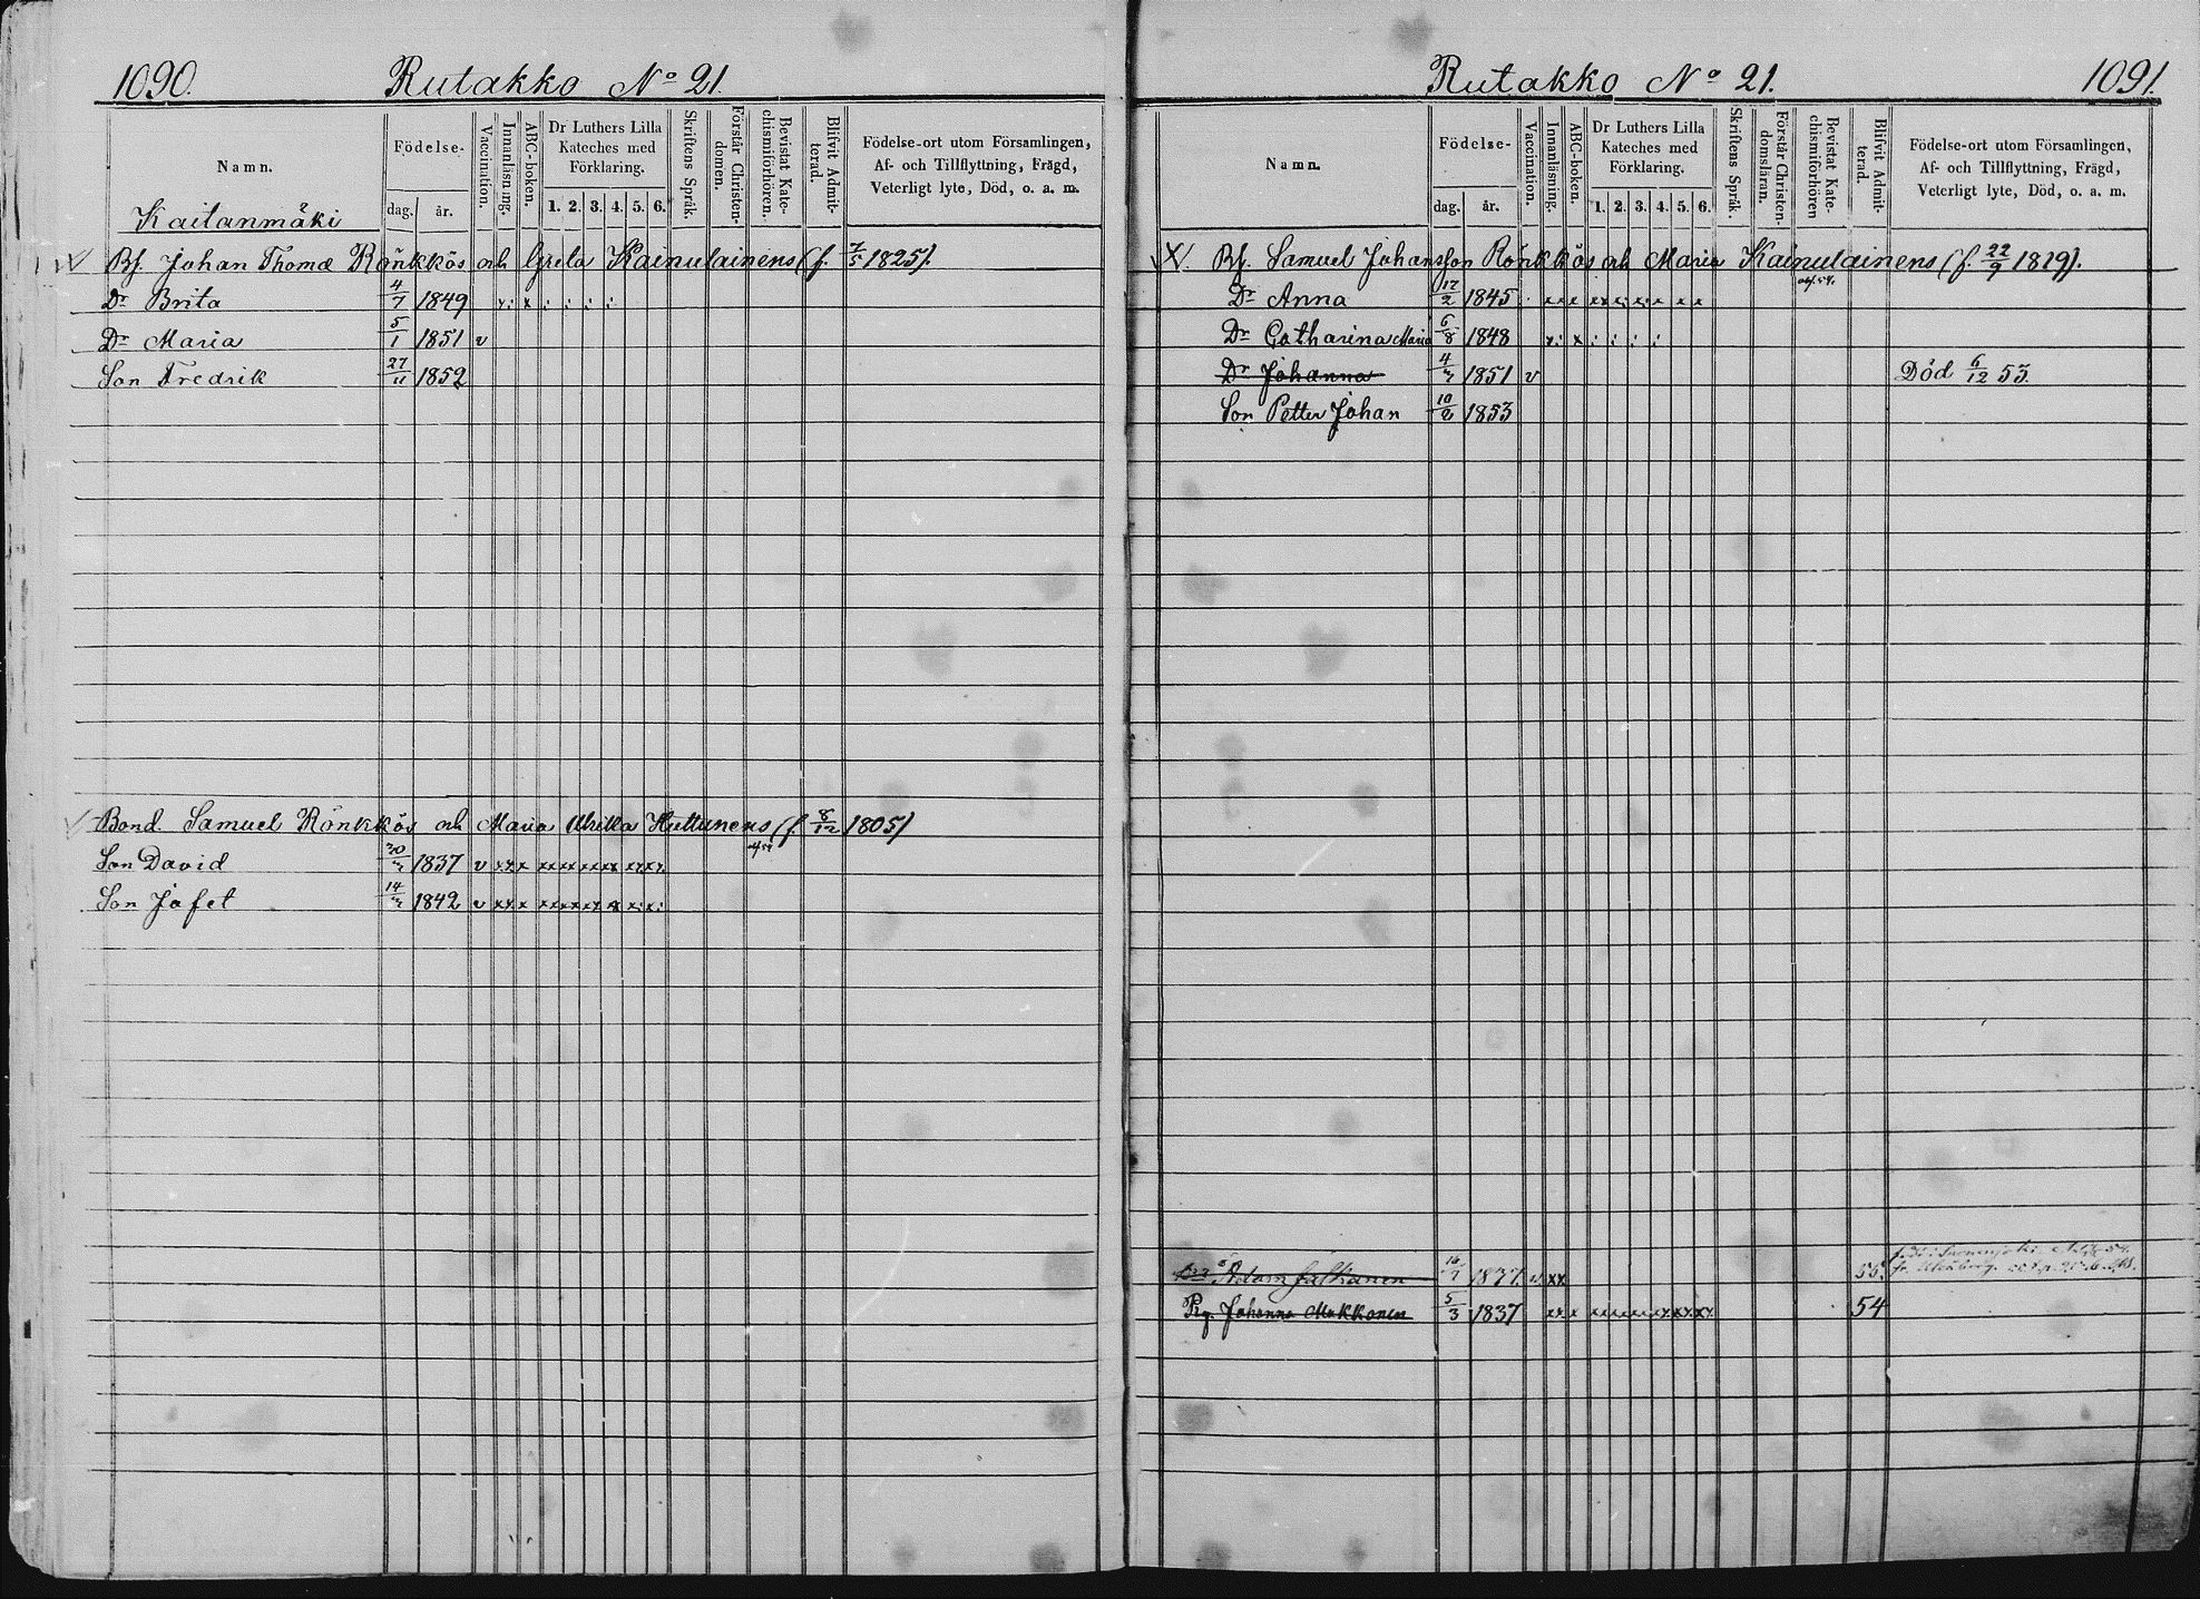 1090. Rutakko No 21.
Namn. Födelse- dag. år. Vaccination. Innanläsning. ABC-boken. Dr Luthers Lilla Kateches med Förklaring. 1. 2. 3. 4. 5. 6. Skriftens Språk. Förstår Christendomen. Bevistat Katechismiförhören. Blifvit Admitterad. Födelse-ort utom Församlingen, Af- och Tillflyttning, Frägd, Veterligt lyte, Död, o. a. m.
Kaitanmäki
Bf. Johan Thomæ Rönkkös och Greta Kainulainens (f. 7/5 1825).
Dr Brita 4/7 1849
Dr Maria 5/1 1851 v
Son Fredrik 27/11 1852
Bond. Samuel Rönkkös och Maria Ulrika Huttunens (f. 8/12 1805)
Son David 1837 v
Son Jafet 1842 v
Rutakko No 21. 1091.
Namn. Födelse- dag. år. Vaccination. Innanläsning. ABC-boken. Dr Luthers Lilla Kateches med Förklaring. 1. 2. 3. 4. 5. 6. Skriftens Språk. Förstår Christendomsläran. Bevistat Katechismiförhören Blifvit Admitterad. Födelse-ort utom Församlingen, Af- och Tillflyttning, Frägd, Veterligt lyte, Död, o. a. m.
Bf. Samuel Johansson Rönkkös och Maria Kainulainens (f. 22/9 1819).
Dr Anna 17/2 1845
Dr Catharina Maria 6/8 1848
Dr Johanna 1851 v Död 6/12 53.
Son Petter Johan 10/2 1853
Adam 1837 v xx 55.
Pig. Johanna Mukkonen 5/3 1837 54